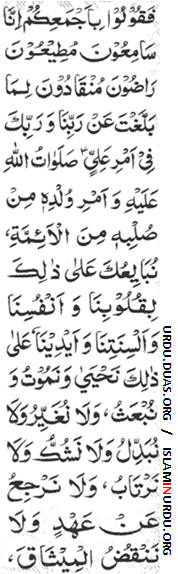 فَقُولُوْا بِاَجْمَعِكُمْ اِنَّا
سَامِعُوْنَ مُطِيْعُوْنَ
رَاضُوْنَ مُنْقَادُوْنَ لِمَا
بَلَّغْتَ عَنْ رَبِّنَا وَ رَبِّكَ
فِيْ اَمْرِ عَلِيٍّ صَلَوَاتُ اللهِ
عَلَيْهِ وَ اَمْرِ وُلْدِهٖ مِنْ
صُلْبِهٖ مِنَ الْاَئِمَّةِ،
نُبَايِعُكَ عَلٰى ذٰلِكَ
لِقُلُوْبِنَا وَ اَنْفُسِنَا
وَ اَلْسِنَتِنَا وَ اَيْدِيْنَا عَلٰى
ذٰلِكَ نَحْيٰى وَ نَمُوْتُ وَ
نُبْعَثُ، وَلَا نُغَيِّرُ وَلَا
نُبَدِّلُ وَلَا نَشُكُّ وَلَا
نَرْتَابُ، وَلَا نَرْجِعُ
عَنْ عَهْدٍ وَلَا
نَنْقُضُ الْمِيْثَاقَ،
URDU.DUAS.ORG / ISLAMINURDU.ORG